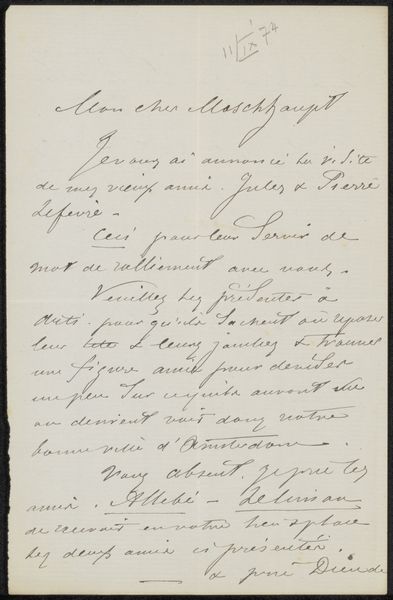 11/IX 74
Mon cher Maschhaupt
Je vous ai annoncé la visite
de mes vieux amis. Jules & Pierre
Lefevre -
Ceci pour leur Servir de
mot de ralliement avec vous.
Veuillez les présenter à
Arti. pour qu'ils Sachent où reposer
leur tête & leurs jambes & trouver
une figure amie pour deviser
un peu Sur ce qu'ils auront vu
ou devront voir dans notre
bonne ville d'Amsterdam.
Vous absent. je prie les
amis. Allebé -
de recevoir en votre lieu & place
les deux amis ci présentés.
& prie Dieu de